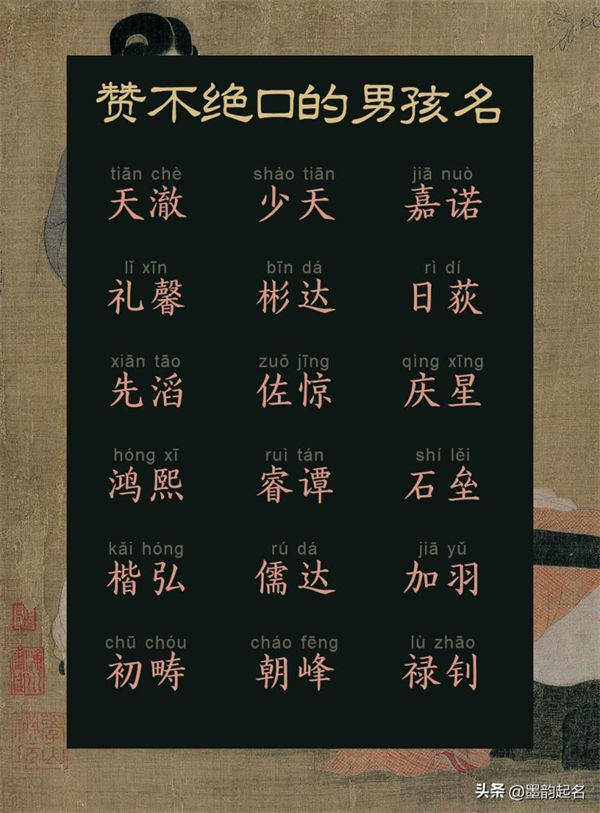 赞不绝口的男孩名
tiān chè shào tiān jiā nuò
天澈 少天 嘉诺
lǐ xīn bīn dá rì dí
礼馨 彬达 日荻
xiān tāo zuǒ jīng qìng xīng
先滔 佐惊 庆星
hóng xī ruì tán shí lěi
鸿熙 睿谭 石垒
kǎi hóng rú dá jiā yǔ
楷弘 儒达 加羽
chū chóu cháo fēng lù zhāo
初畴 朝峰 禄钊
头条 @墨韵起名